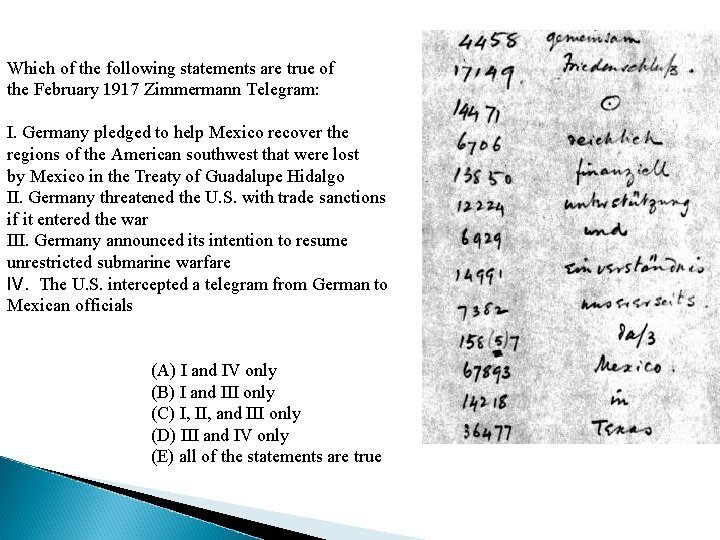 Which of the following statements are true of
the February 1917 Zimmermann Telegram:
I. Germany pledged to help Mexico recover the
regions of the American southwest that were lost
by Mexico in the Treaty of Guadalupe Hidalgo
II. Germany threatened the U.S. with trade sanctions
if it entered the war
III. Germany announced its intention to resume
unrestricted submarine warfare
IV. The U.S. intercepted a telegram from German to
Mexican officials
(A) I and IV only
(B) I and III only
(C) I, II, and III only
(D) III and IV only
(E) all of the statements are true
4458 gemeinsam
17149 Friedenschluß.
14471 ⊙
6706 reichlich
13850 finanziell
12224 unterstützung
6929 und
14991 einverständnis
7382 unsererseits.
158(5)7 daß
67893 Mexico.
14218 in
36477 Texas